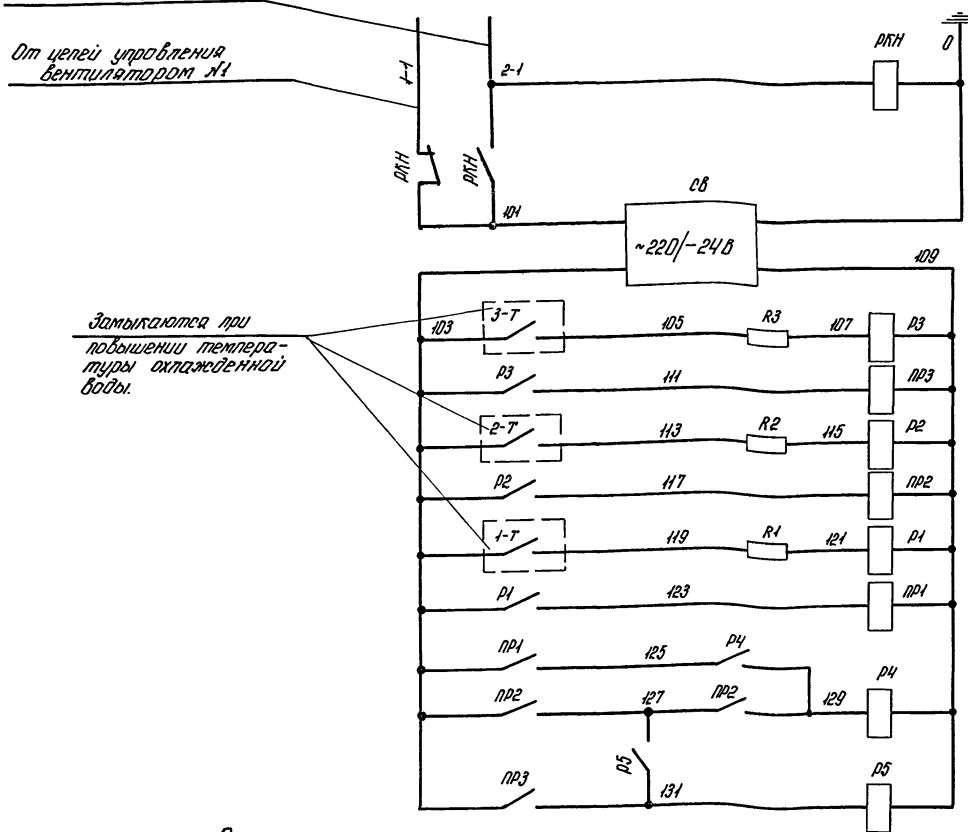 От цепей управления
вентилятором №1
1-1
2-1
РКН
0
РКН
РКН
101
СВ
~220/-24В
109
Замыкаются при
повышении темпера-
туры охлажденной
воды.
103
3-Т
105
R3
107
Р3
Р3
111
ПР3
2-Т
113
R2
115
Р2
Р2
117
ПР2
1-Т
119
R1
121
Р1
Р1
123
ПР1
ПР1
125
Р4
Р4
ПР2
127
ПР2
129
Р5
ПР3
131
Р5